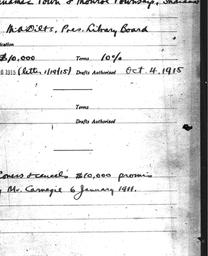 Town & Monroe Township, Indiana
M. A. Dilts, Pres. Library Board
ication
$10,000 Terms 10%
1915 (letter 1/19/15) Drafts Authorized Oct. 4, 1915
Terms
Drafts Authorized
Covers & cancels $10,000 promis
Mr. Carnegie 6 January 1911.